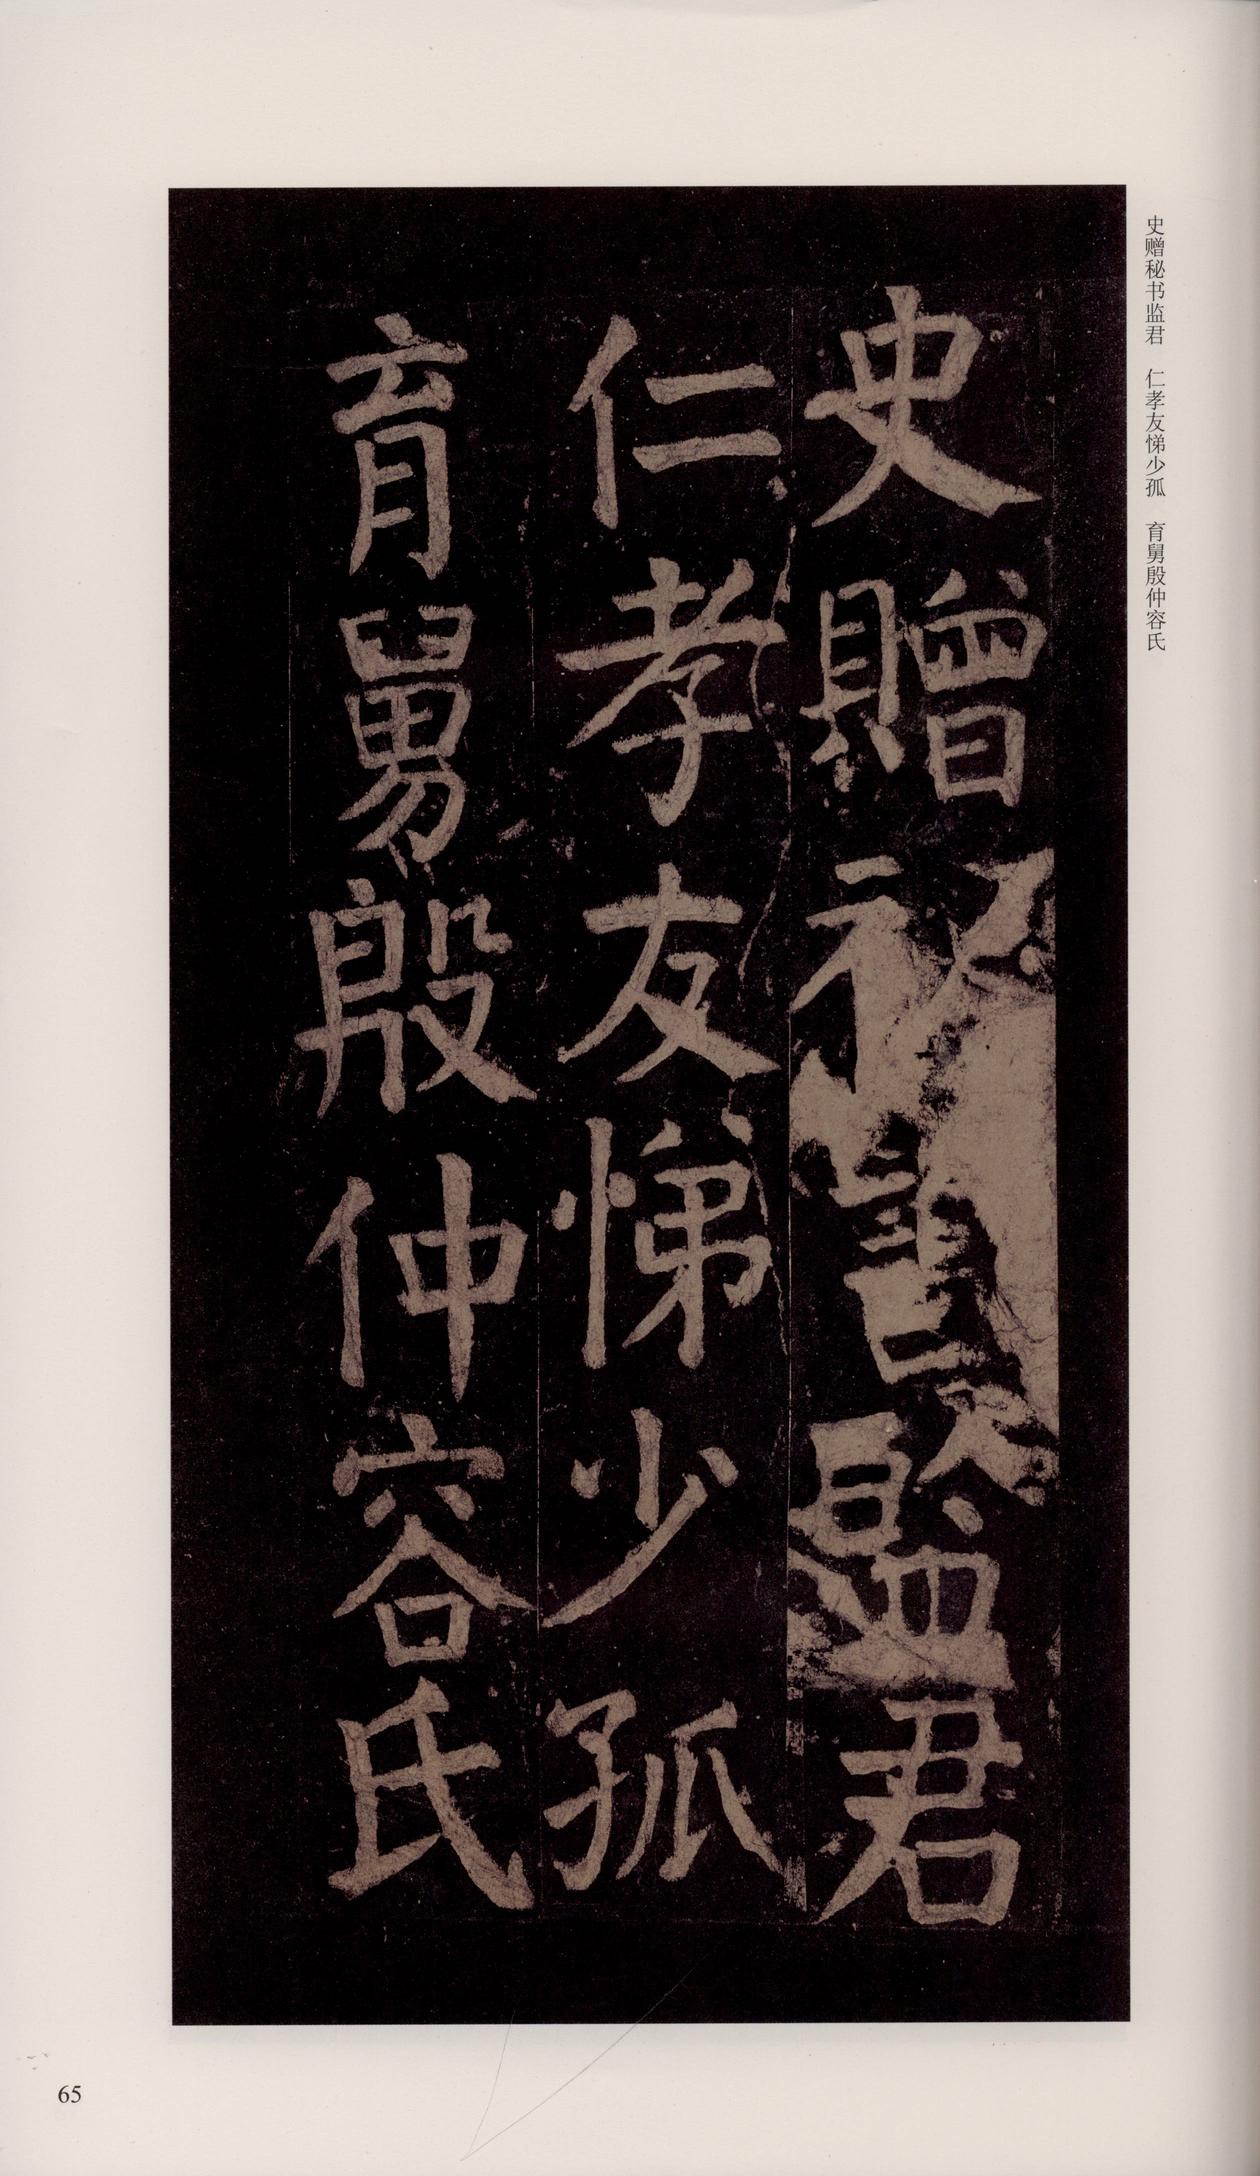 史赠秘书监君 仁孝友悌少孤 育舅殷仲容氏
史贈秘書監君
仁孝友悌少孤
育舅殷仲容氏
65